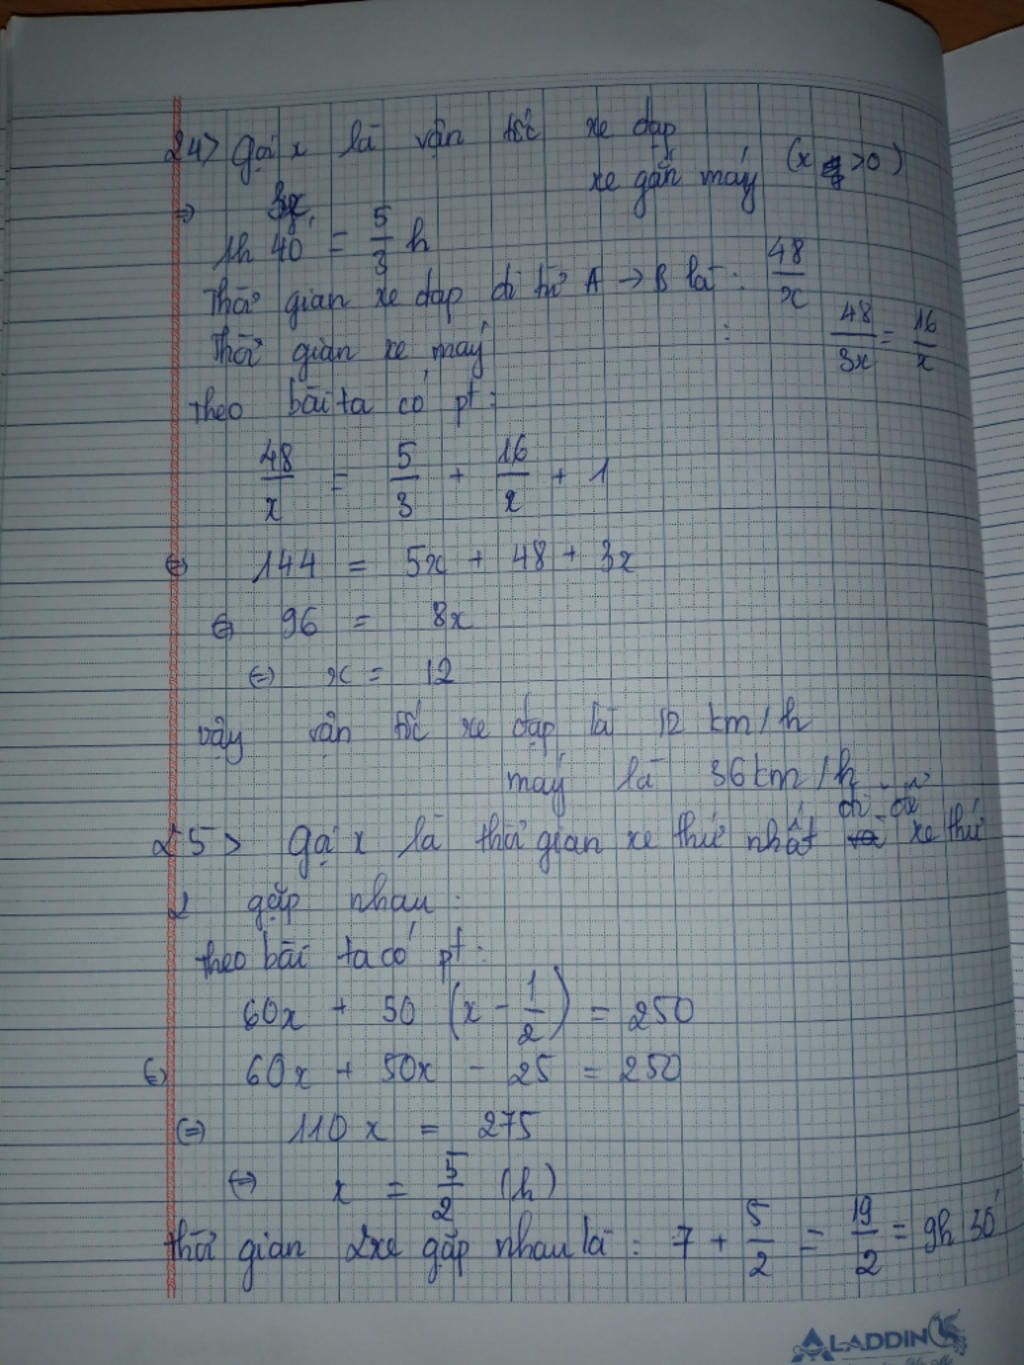 24> Gọi x là vận tốc xe đạp (x >0)
=> 3x xe gắn máy
1h 40' = 5/3 h
Thời gian xe đạp đi từ A → B là : 48/x
Thời gian xe máy : 48/3x = 16/x
Theo bài ta có pt :
48/x = 5/3 + 16/x + 1
<=> 144 = 5x + 48 + 3x
<=> 96 = 8x
<=> x = 12
Vậy vận tốc xe đạp là 12 km/h
máy là 36km/h
25> Gọi x là thời gian xe thứ nhất đi để xe thứ
2 gặp nhau :
Theo bài ta có pt :
60x + 50 (x - 1/2) = 250
<=> 60x + 50x - 25 = 250
<=> 110x = 275
<=> x = 5/2 (h)
Thời gian 2xe gặp nhau là : 7 + 5/2 = 19/2 = 9h 30'
ALADDIN